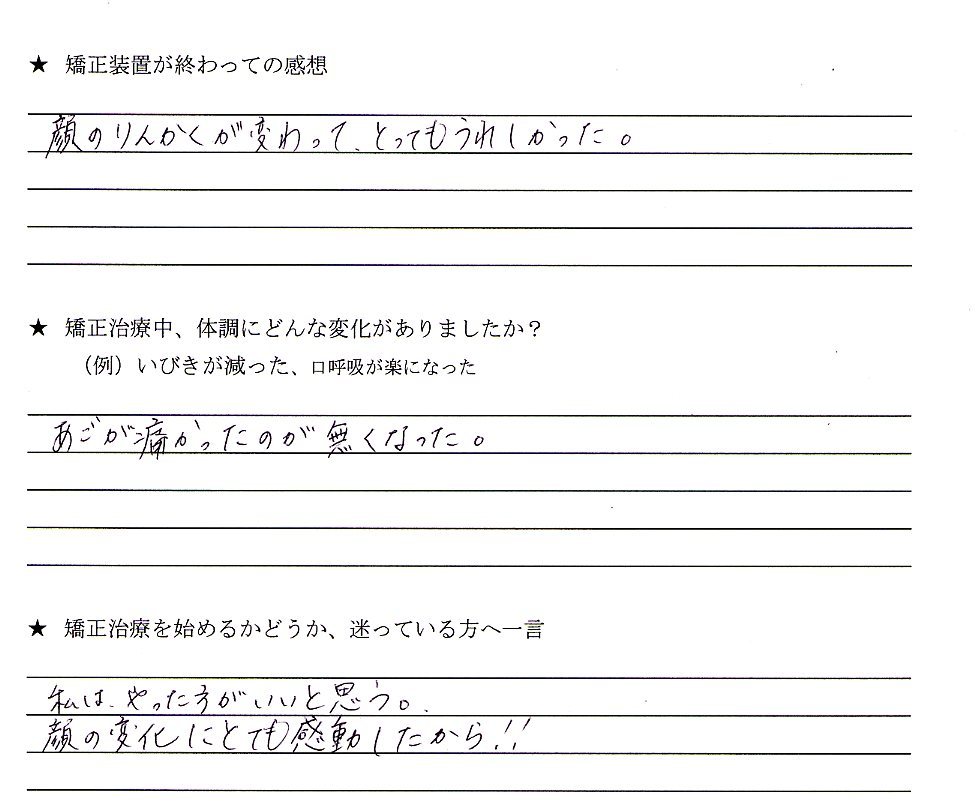 ★ 矯正装置が終わっての感想
顔のりんかくが変わって、とってもうれしかった。
★ 矯正治療中、体調にどんな変化がありましたか？
（例）いびきが減った、口呼吸が楽になった
あごが痛かったのが無くなった。
★ 矯正治療を始めるかどうか、迷っている方へ一言
私は、やった方がいいと思う。
顔の変化にとても感動したから!!